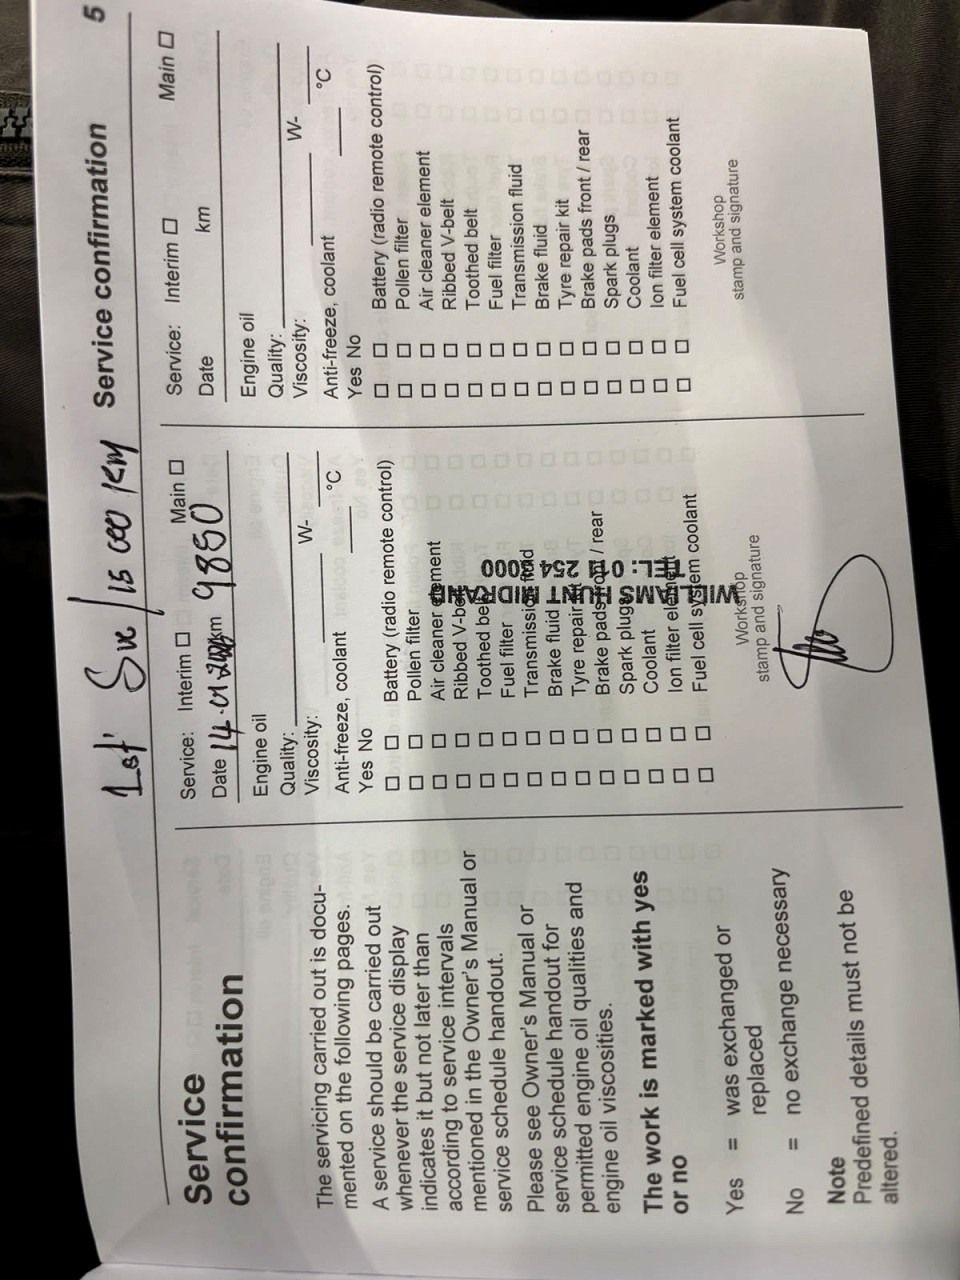 1st Svc / 15 000 km
Service confirmation 5
Service
confirmation
The servicing carried out is docu-
mented on the following pages.
A service should be carried out
whenever the service display
indicates it but not later than
according to service intervals
mentioned in the Owner's Manual or
service schedule handout.
Please see Owner's Manual or
service schedule handout for
permitted engine oil qualities and
engine oil viscosities.
The work is marked with yes
or no
Yes = was exchanged or
replaced
No = no exchange necessary
Note
Predefined details must not be
altered.
Service: Interim □ Main □
Date 14.01 km 9850
Engine oil
Quality:
Viscosity: W-
Anti-freeze, coolant °C
Yes No
□ □ Battery (radio remote control)
□ □ Pollen filter
□ □ Air cleaner element
□ □ Ribbed V-belt
□ □ Toothed belt
□ □ Fuel filter
□ □ Transmission fluid
□ □ Brake fluid
□ □ Tyre repair kit
□ □ Brake pads front / rear
□ □ Spark plugs
□ □ Coolant
□ □ Ion filter element
□ □ Fuel cell system coolant
WILLIAMS HUNT MIDRAND
TEL: 011 254 3000
Workshop
stamp and signature
Service: Interim □ Main □
Date km
Engine oil
Quality:
Viscosity: W-
Anti-freeze, coolant °C
Yes No
□ □ Battery (radio remote control)
□ □ Pollen filter
□ □ Air cleaner element
□ □ Ribbed V-belt
□ □ Toothed belt
□ □ Fuel filter
□ □ Transmission fluid
□ □ Brake fluid
□ □ Tyre repair kit
□ □ Brake pads front / rear
□ □ Spark plugs
□ □ Coolant
□ □ Ion filter element
□ □ Fuel cell system coolant
Workshop
stamp and signature